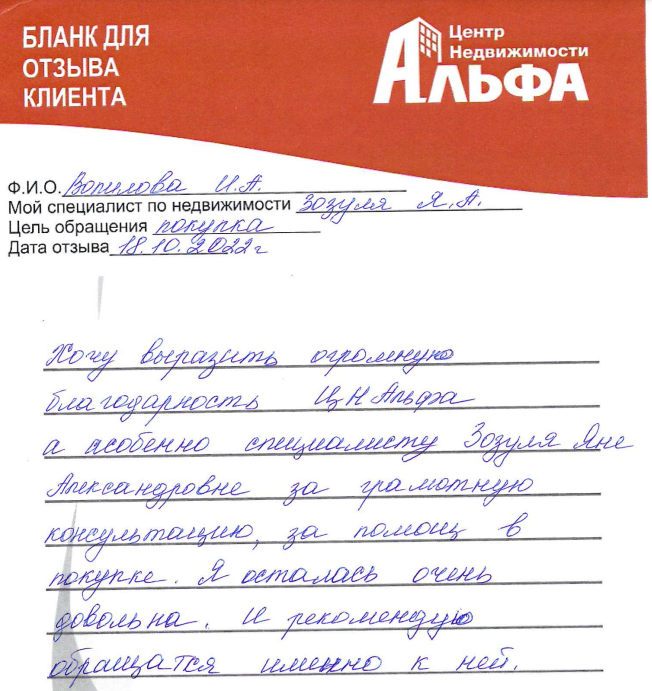 БЛАНК ДЛЯ
ОТЗЫВА
КЛИЕНТА
Центр
Недвижимости
АЛЬФА
Ф.И.О. Вопилова И.А.
Мой специалист по недвижимости Зозуля Я.А.
Цель обращения покупка
Дата отзыва 18.10.2022г
Хочу выразить огромную
благодарность ЦН Альфа
а особенно специалисту Зозуля Яне
Александровне за грамотную
консультацию, за помощ в
покупке. Я осталась очень
довольна. И рекомендую
обращатся именно к ней.